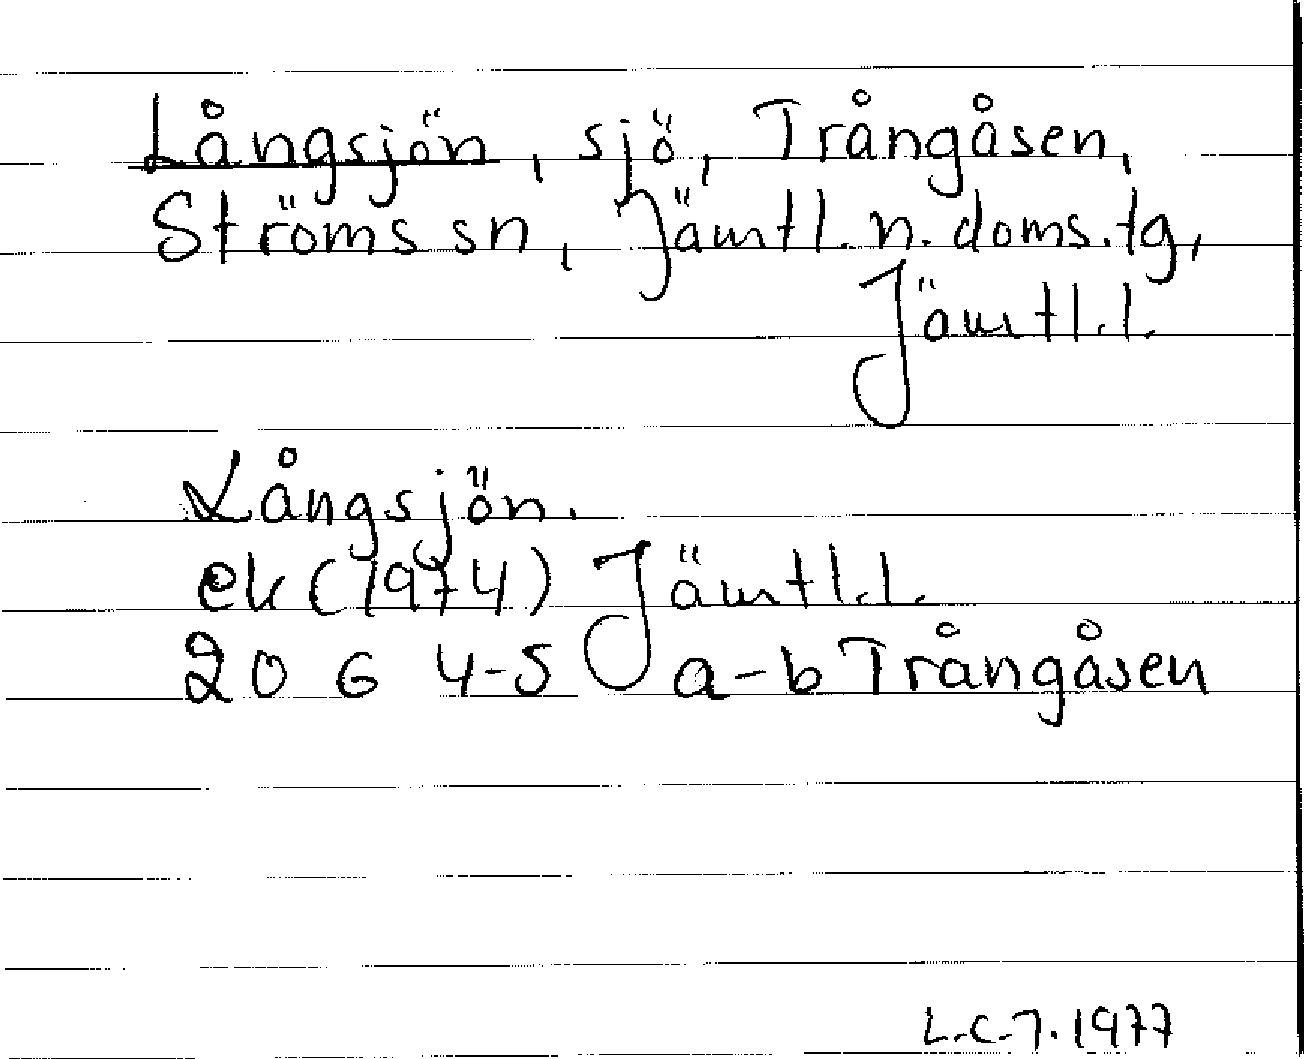 Långsjön, sjö, Trångåsen,
Ströms sn, Jämtl. n. doms. tg,
Jämtl. l.
Långsjön.
ek (1974) Jämtl. l.
20 G 4-5 a-b Trångåsen
L.C.7.1977